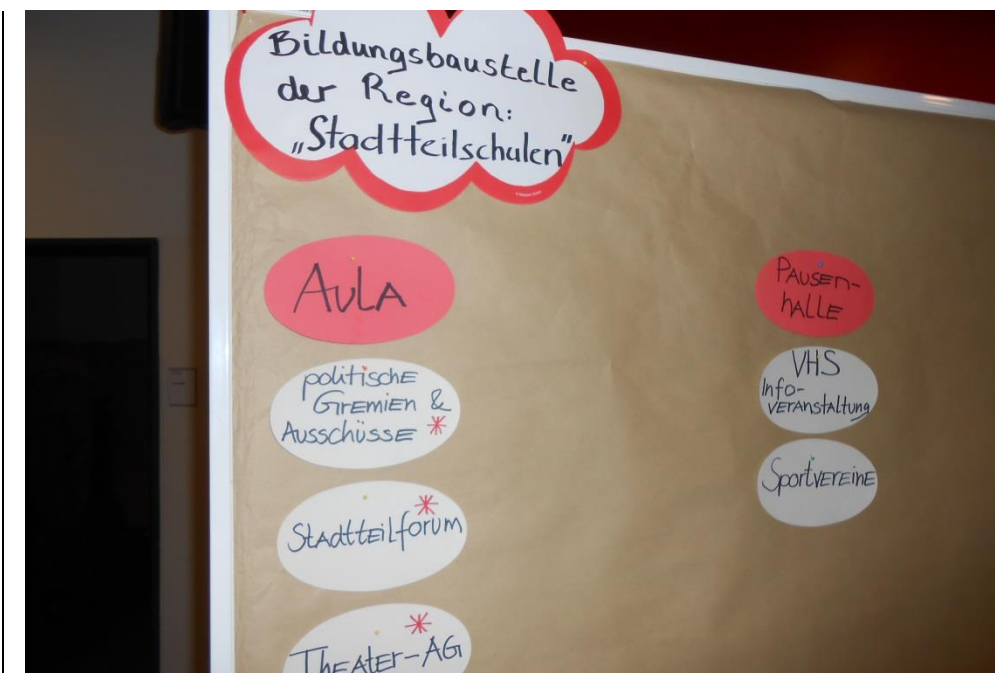 Bildungsbaustelle
der Region:
„Stadtteilschulen"
Aula
politische
Gremien &
Ausschüsse *
Stadtteilforum *
Theater-AG *
Pausen-
halle
VHS
Info-
veranstaltung
Sportvereine